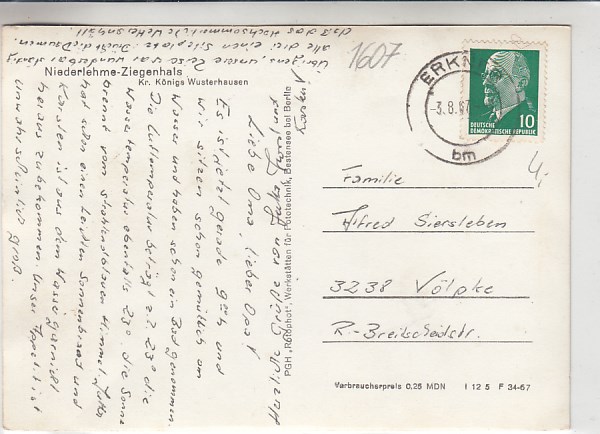 Niederlehme-Ziegenhals
Kr. Königs Wusterhausen
1607
ERKN
-3.8.67
bm
10
DEUTSCHE
DEMOKRATISCHE REPUBLIK
4,-
Liebe Oma, lieber Opa!
Es ist jetzt gerade 9 h und
wir sitzen schon gemütlich am
Wasser und haben schon ein Bad genommen.
Die Lufttemperatur beträgt z.Z. 23° die
Wassertemperatur ebenfalls 23°. die Sonne
brennt vom strahlendblauen Himmel.
hat schon einen leichten Sonnenbrand und
Karsten ist aus dem Wasser gar nicht
heraus zubekommen. Unser Appetit ist
unwahrscheinlich groß.
Übrigens, unsere Reise war wunderbar
alle drei einen Sitzplatz. Drückt die Daumen,
daß das Hochsommerliche Wetter anhält
Herzliche Grüße von
Karsten
PGH „Rotophot", Werkstätten für Fototechnik, Bestensee bei Berlin
Familie
Alfred Siersleben
3238 Völpke
R.-Breitscheidstr.
Verbraucherpreis 0,25 MDN I 12 5 F 34-67